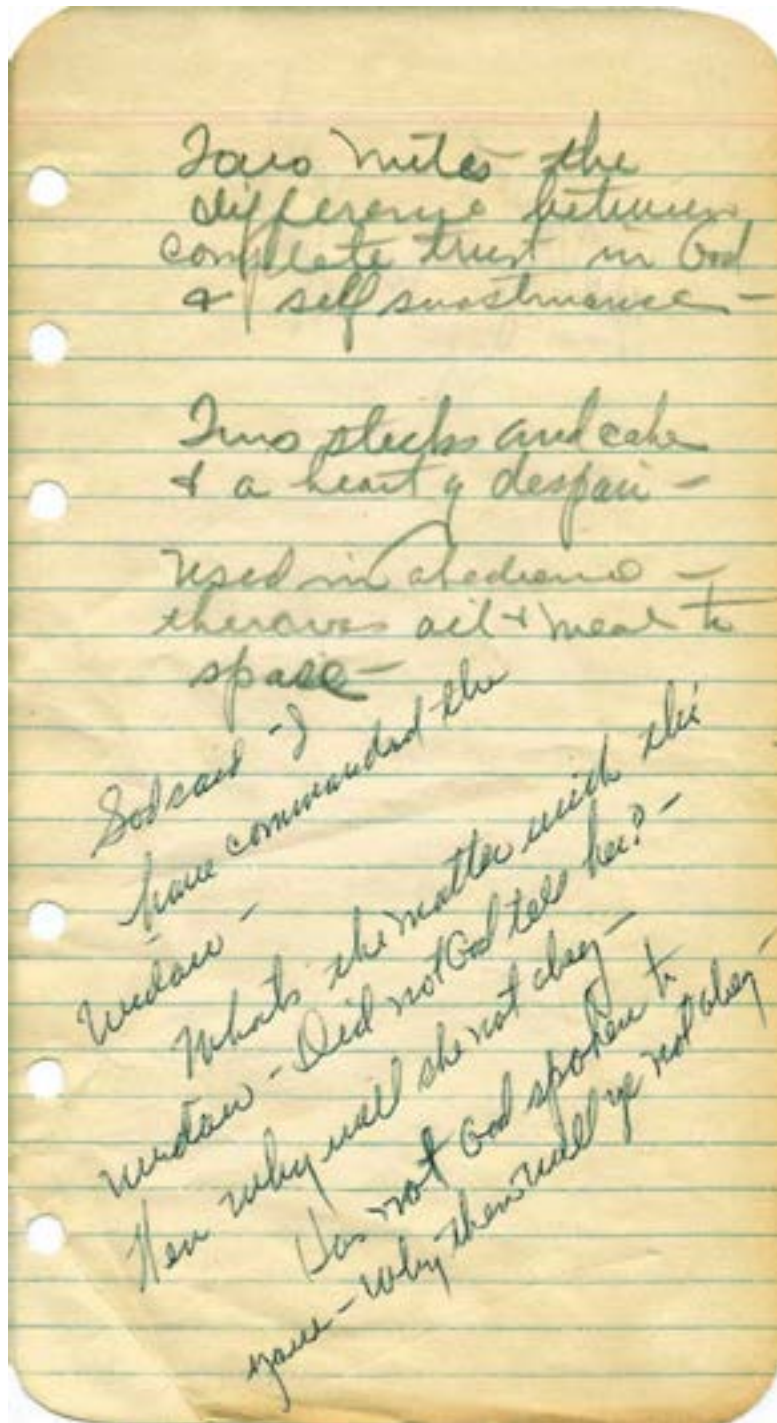 Two mites - the
difference between
complete trust in God
& self sustinance -
Two sticks and cake
& a heart of despair -
Used in obedience -
there was oil & meal to
spare -
God said - I
have commanded the
widow -
Whats the matter with this
widow - Did not God tell her? -
Then why will she not obey -
Has not God spoken to
you - Why then will ye not obey -